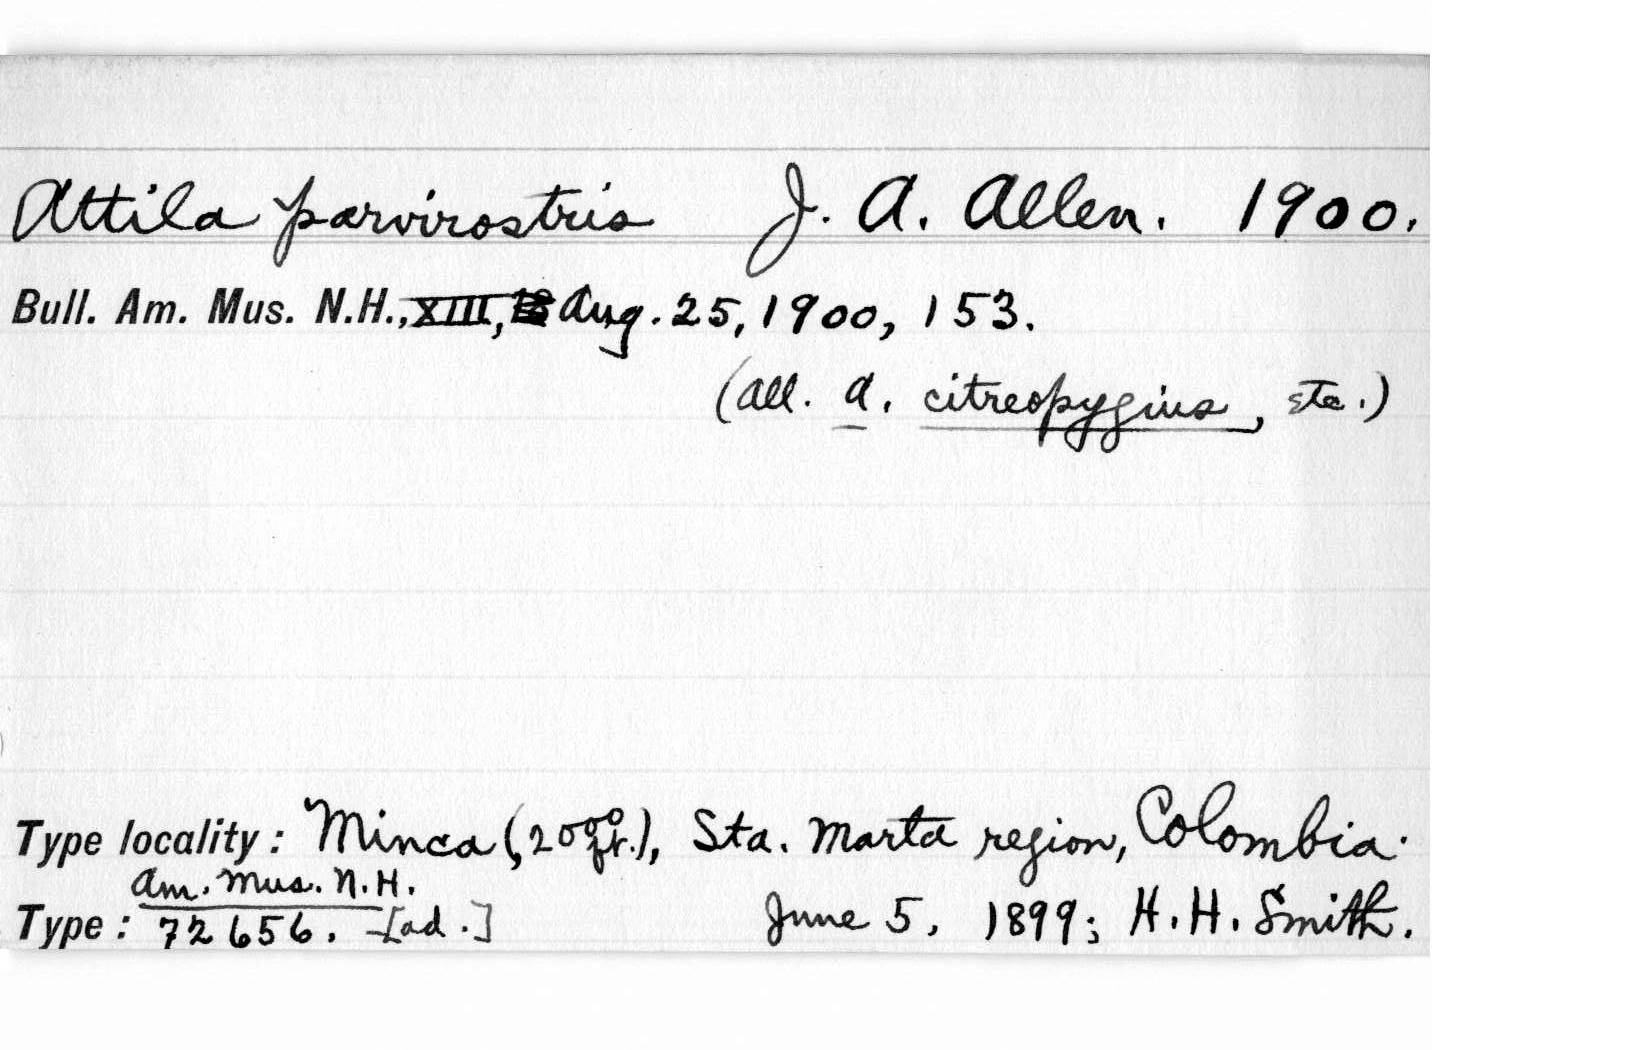 Attila parvirostris J. A. Allen. 1900.
Bull. Am. Mus. N.H., XIII, Aug. 25, 1900, 153.
(All. A. citreopygius, etc.)
Type locality: Minca (2000 ft.), Sta. Marta region, Colombia.
Am. Mus. N.H.
Type: 72656. [ad.] June 5, 1899; H. H. Smith.